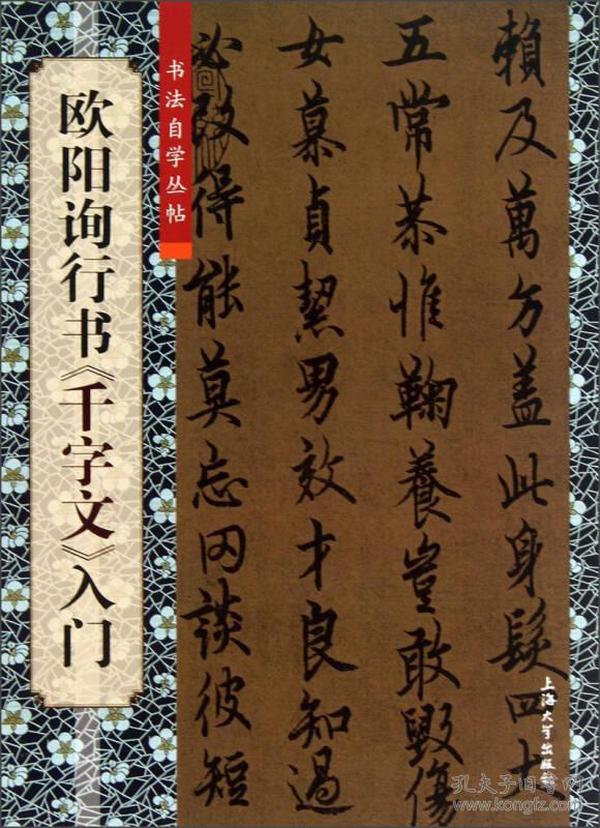 欧阳询行书《千字文》入门
书法自学丛帖
賴及萬方盖此身髮四大
五常恭惟鞠養豈敢毀傷
女慕貞絜男效才良知過
必改得能莫忘罔談彼短
上海大学出版社
孔夫子旧书网
www.kongfz.com